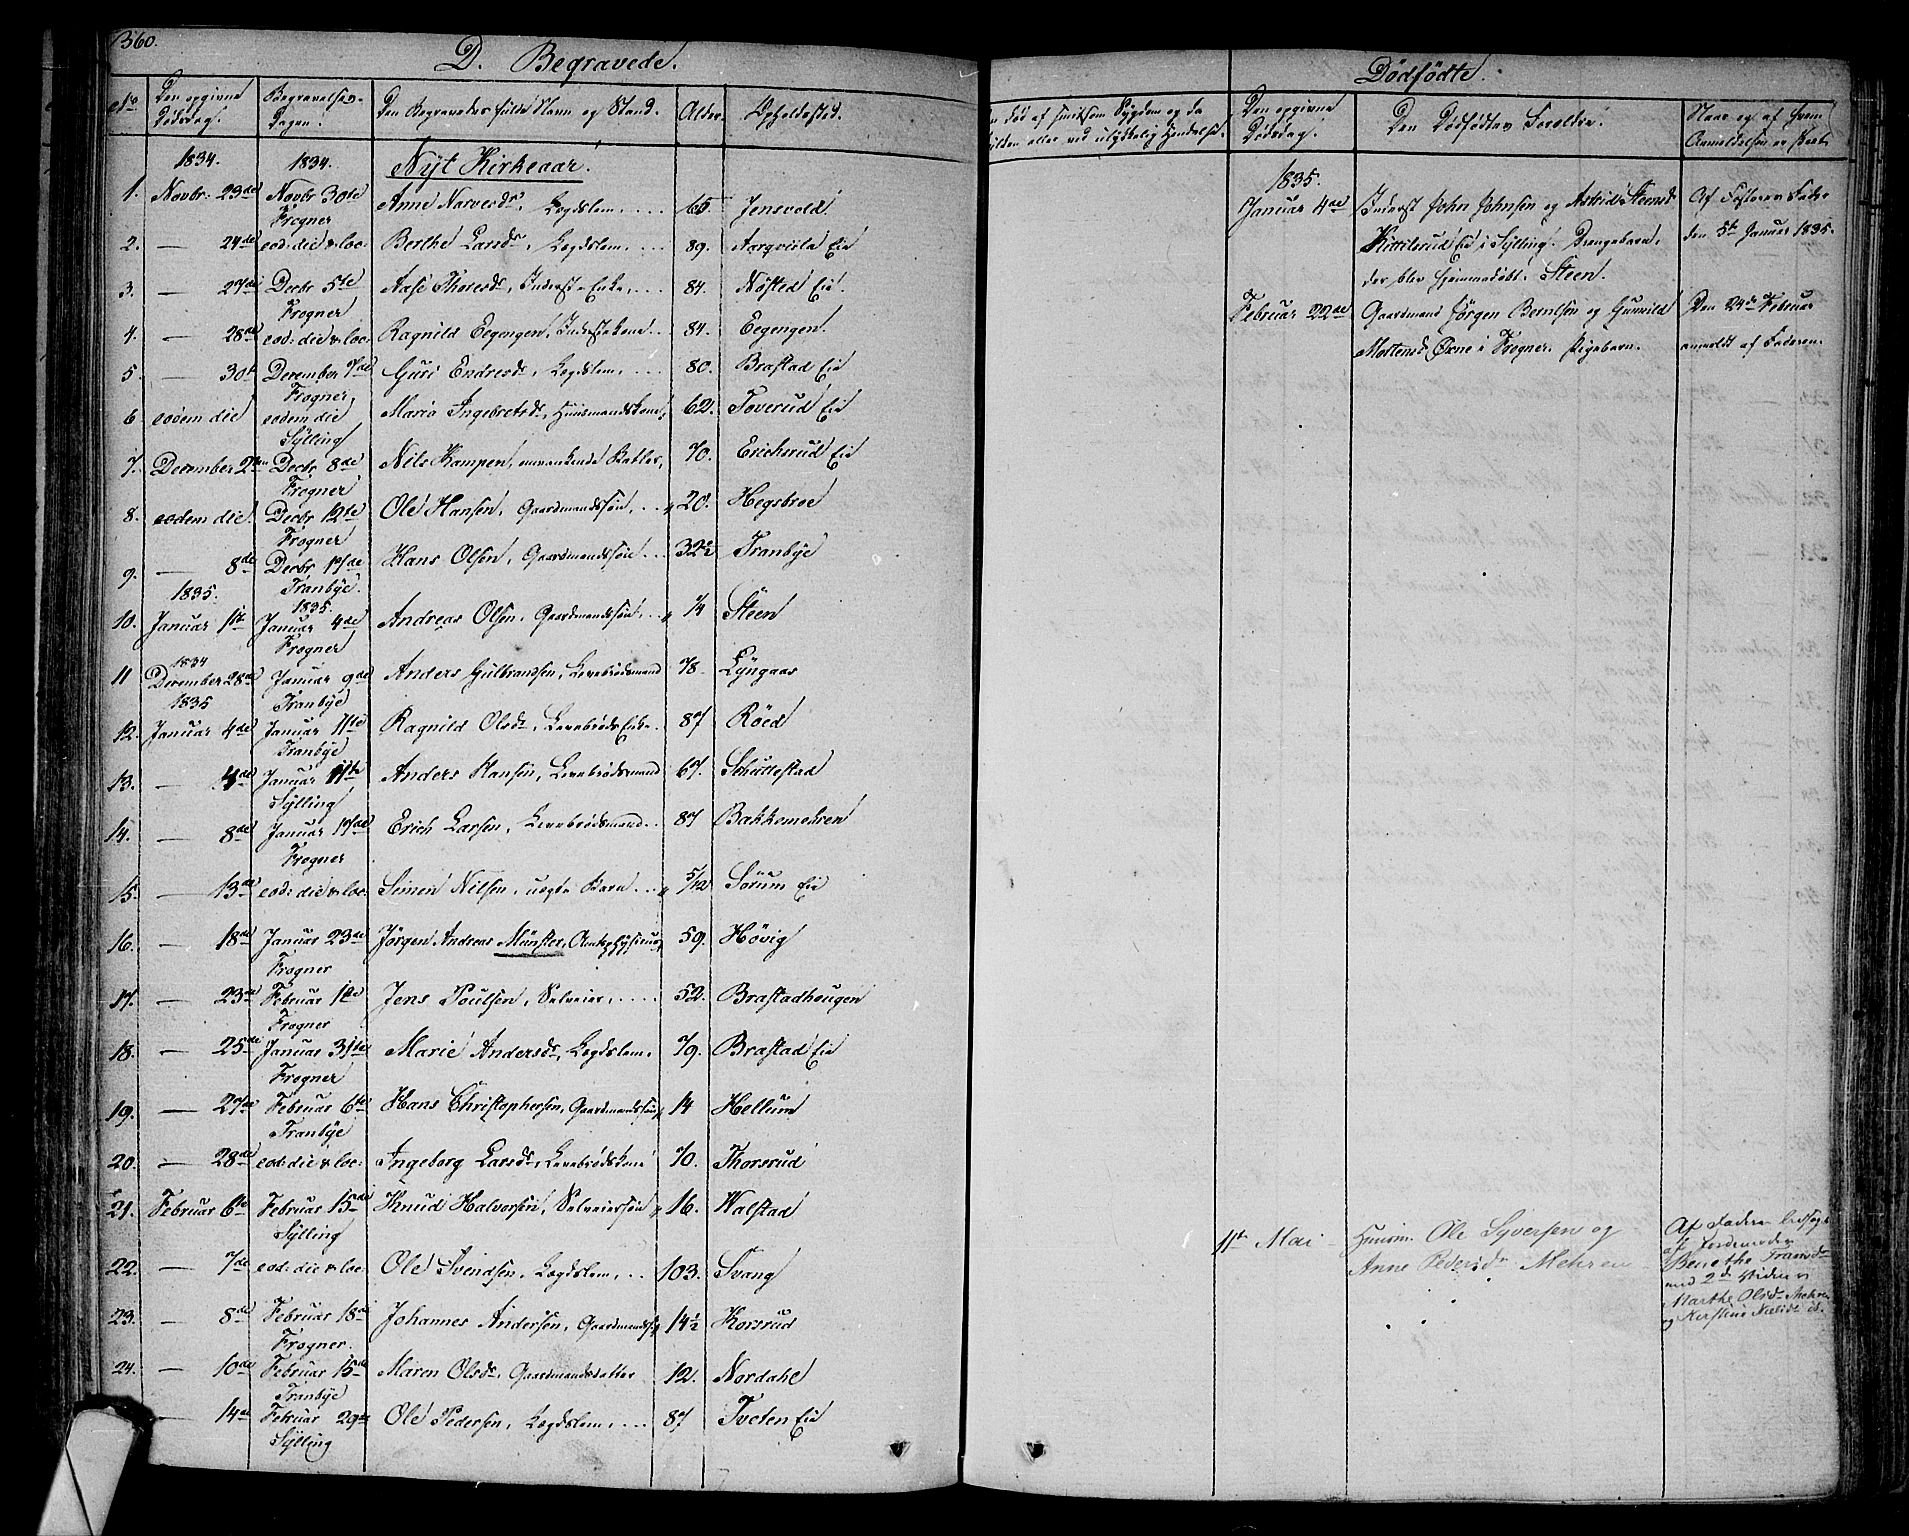 360.
D. Begravede.
No Den opgivne Dødsdag. Begravelses-Dagen. Den Begravedes fulde Navn og Stand. Alder. Opholdssted.
1834. 1834. Nyt Kirkeaar.
1. Novbr: 23de Novbr 30te Anne Narvesdr, Lægdslem, .... 65 Jensvold.
Frogner
2. — 24de eod: die & loc: Berthe Larsdr, Lægdslem, .... 89. Aarqvisla Eie
3. — 27de Decbr 5te Aase Thoresdr, Inderst-Enke, ... 84. Nøsted Eie.
Frogner
4. — 28de eod: die & loc: Ragnild Eegengen, Inderstekone.. 84. Eegengen.
5. — 30te December 7de Guri Endresdr, Lægdslem, .... 80. Brastad Eie
Frogner
6 eodem die eodem die Maria Ingebretsdr, Huusmandskone, 62. Toverud Eie
Sylling
7. December 2den Decbr 8de Nils Kampen, omvankende Betler, 70. Erichsrud Eie
Frogner
8. eodem die. Decbr 12te Ole Hansen, Gaardmandssøn, ... 20. Hegsbroe
Frogner
9. — 8de Decbr 17de Hans Olsen, Gaardmandssøn ... 32½ Tranbye
1835. Tranbye.
1835.
10. Januar 1ste Januar 4de Andreas Olsen, Gaardmandssøn, .. ¼ Steen
Frogner
1834
11 December 28de Januar 9de Anders Gulbrandsen, Levebrødsmand 78. Lyngaas
1835 Tranbye
12. Januar 4de Januar 11te Ragnild Olsdr, Levebrøds Enke. 87 Røed
Tranbye
13. — 4de Januar 11te Anders Hansen, Levebrødsmand 67. Schuttestad
Sylling
14. — 8de Januar 17de Erich Larsen, Levebrødsmand.. 87 Bakkemehren
Frogner
15. — 13de eod: die & loc: Simen Nilsen, uægte Barn ... 5/12 Sørum Eie
16. — 18de Januar 23de Jørgen Andreas Münster, Amtsphysicus, 59. Høvig
Frogner
17. — 23de Februar 1ste Jens Poulsen, Selveier, ..... 52. Brastadhougen
Frogner
18. — 25de Januar 31te Marie Andersdr, Lægdslem. 79. Brastad Eie
Frogner
19. — 27de Februar 6te Hans Christophersen, Gaardmandssøn, 14 Hellum
Tranbye
20. — 28de eod: die & loc: Ingeborg Larsdr, Levebrødskone 70. Thorsrud
21. Februar 6te Februar 15de Knud Halvorsen, Selveiersøn 16. Walstad
Sylling
22. — 7de eod: die & loc: Ole Svendsen, Lægdslem, .. 103. Svang
23. — 8de Februar 18de Johannes Andersen, Gaardmandss 14½ Korsrud
Frogner.
24. — 10de Februar 15de Maren Olsdr, Gaardmandsdatter 12. Nordahl
Tranbye
— 14de Februar 29de Ole Pedersen, Lægdslem, .... 87 Tveten Eie
Sylling
Dødfødte.
død af smitsom Sygdom og da
eller ved ulykkelig Hændelse.
Den opgivne Dødsdag. Den Dødfødtes Forældre. Naar og af hvem Anmeldelsen er skeet
1835.
Januar 4de Inderst John Johnsen og Astrid Steensdr Af Fosterets Fader
Kittilsrud Eie i Sylling. Drengebarn, den 5te Januar 1835.
der blev hjemmedøbt. Steen.
Februar 22de Gaardmand Jørgen Berntsen og Gunvild Den 24de Februar
Mortensdr Øxne i Frogner. Pigebarn. anmeldt af Faderen.
11te Mai Huusm. Ole Syversen og
Anne Pedersdr Mehren
Af Faderen
af Jordemoder
Benethe
med 2de Vidner
Marthe Olsdr Mehren
og Kirstine